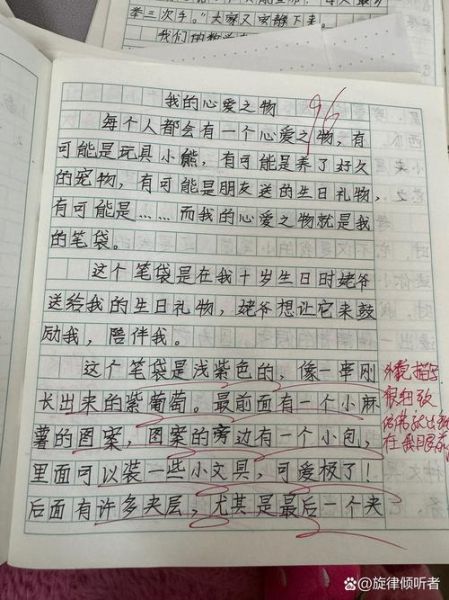 举三次手。”大家又安静下来。
我的心爱之物
96
每个人都会有一个心爱之物，有
可能是玩具小熊，有可能是养了好久
的宠物，有可能是朋友送的生日礼物，
有可能是……而我的心爱之物就是我
的笔袋。
这个笔袋是在我十岁生日时姥爷
送给我的生日礼物，姥爷想让它来鼓
励我，陪伴我。
这个笔袋是浅紫色的，像一串刚
长出来的紫葡萄。最前面有一个小麻
薯的图案，图案的旁边有一个小包，
里面可以装一些小文具，可爱极了！
后面有许多夹层，尤其是最后一个夹
外貌描写
很细致
在我眼前
@旋律倾听者